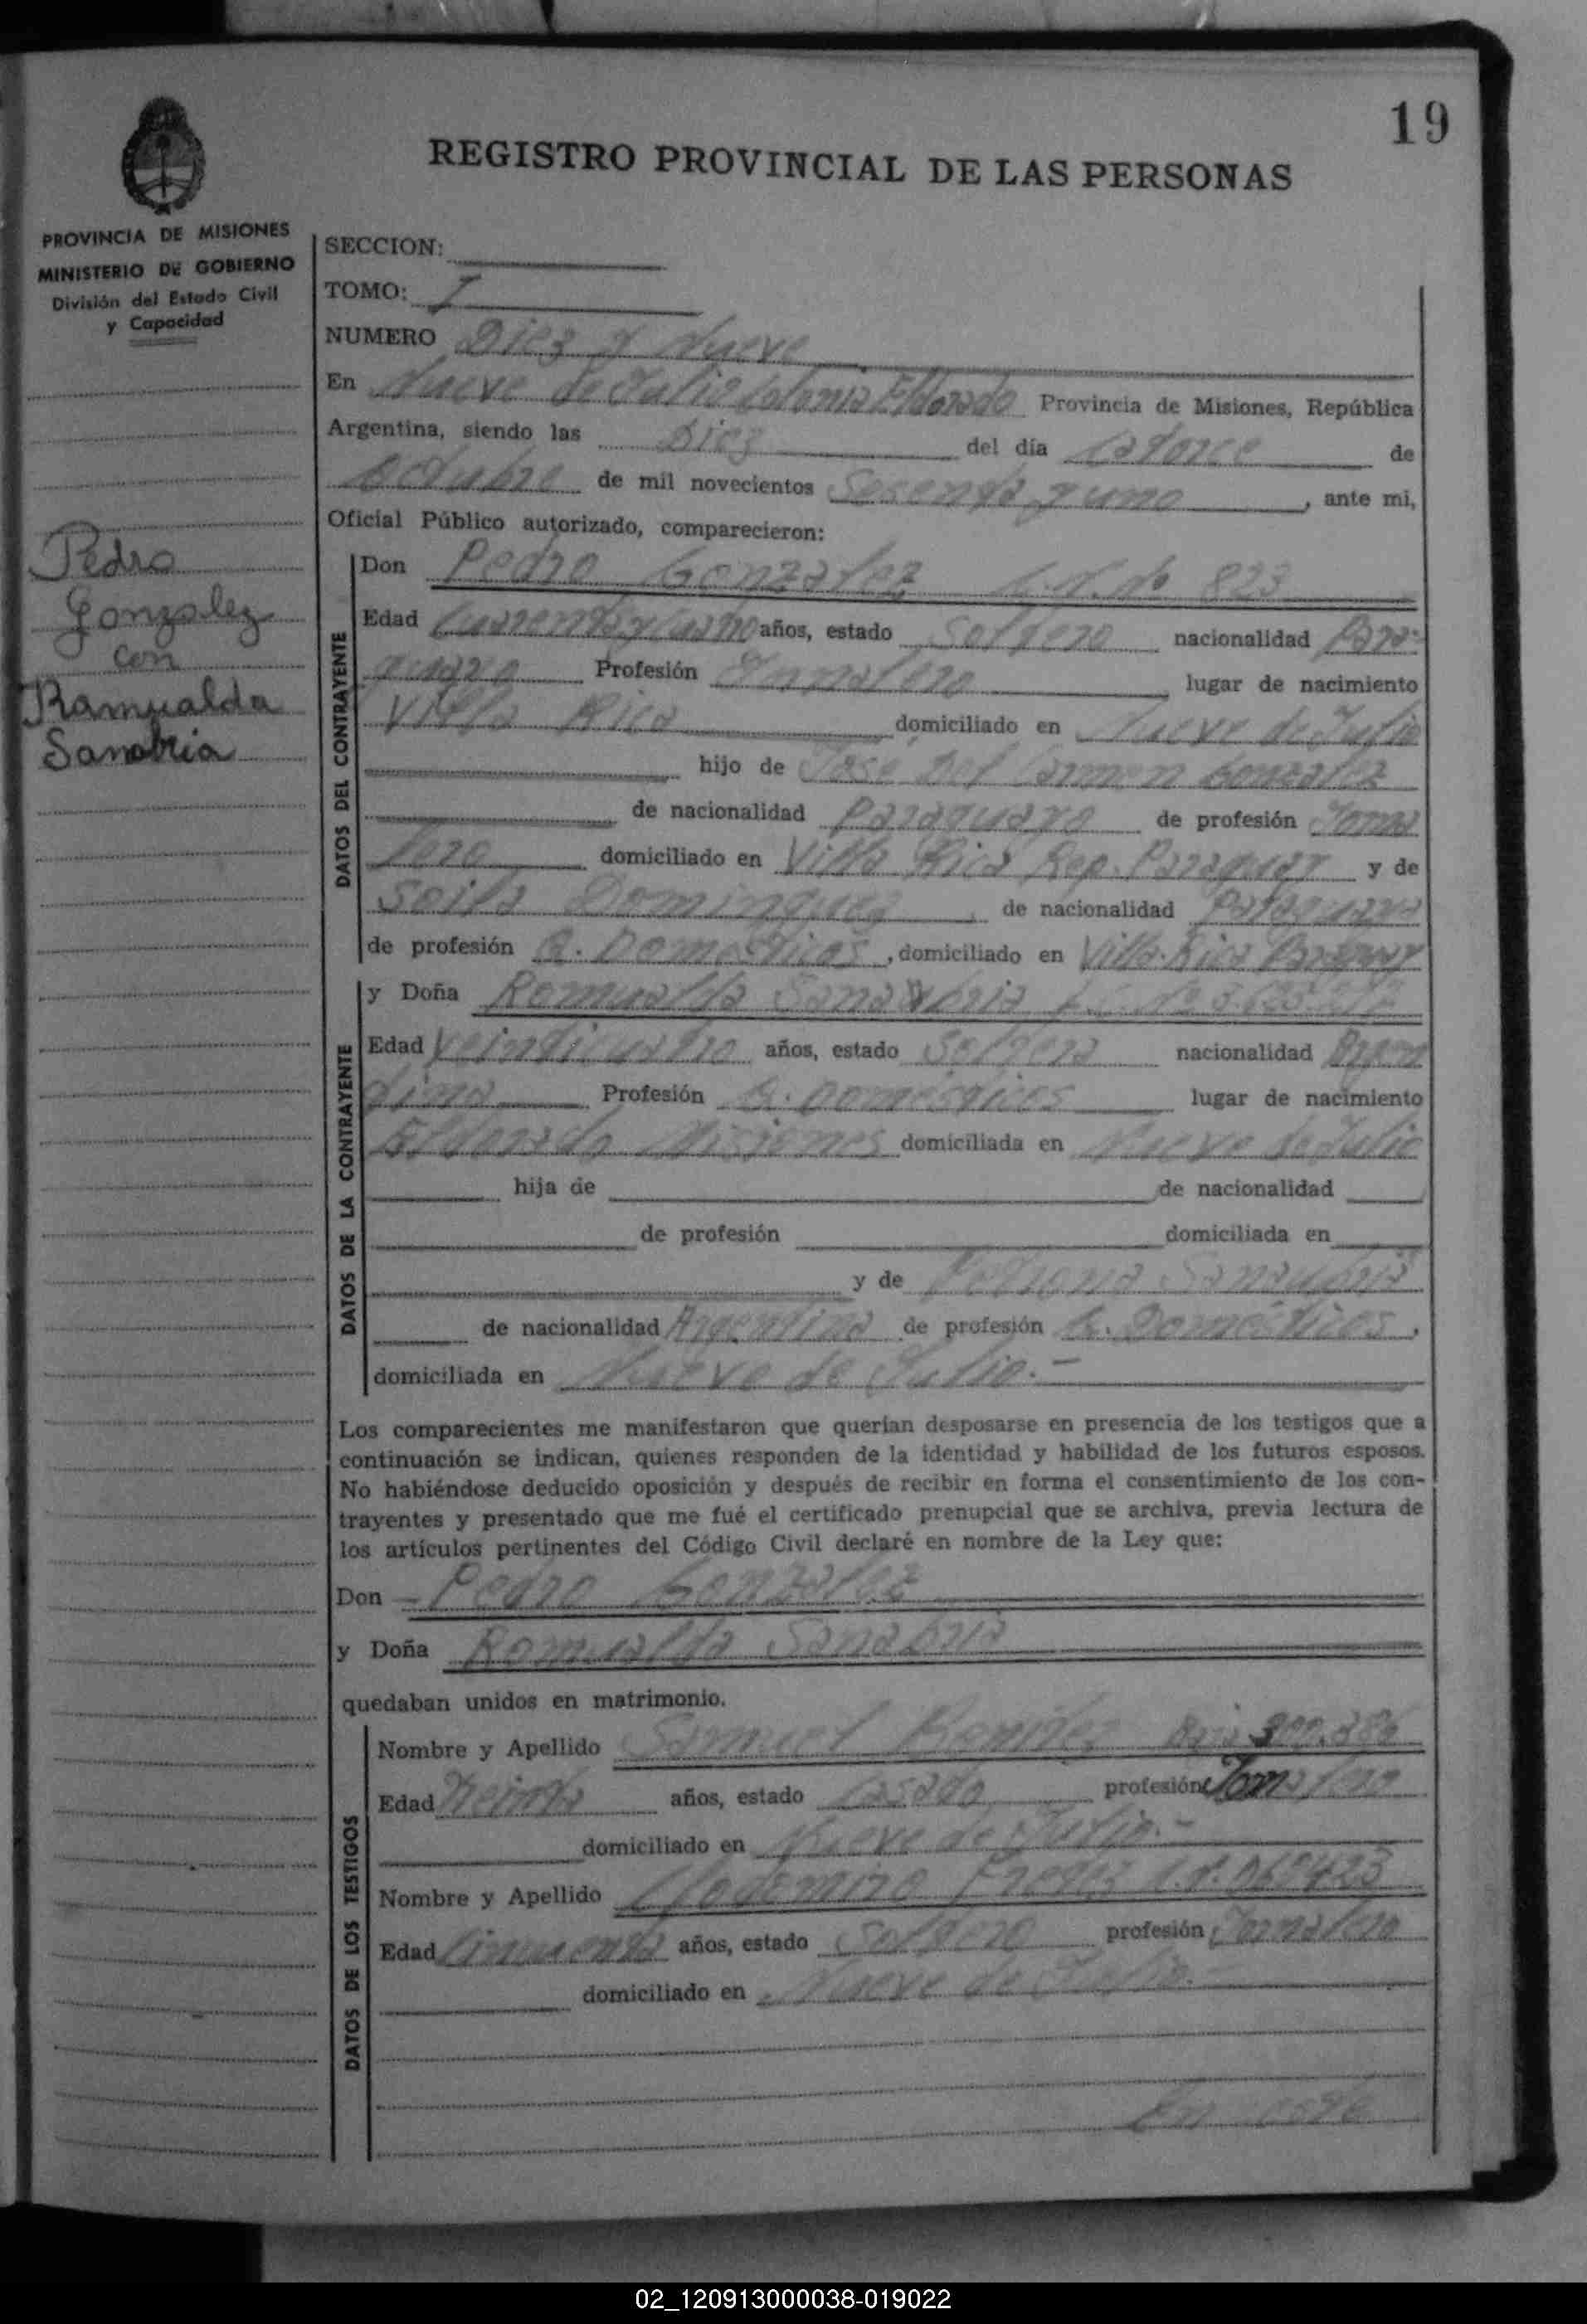 19
REGISTRO PROVINCIAL DE LAS PERSONAS
PROVINCIA DE MISIONES
MINISTERIO DE GOBIERNO
División del Estado Civil
y Capacidad
Pedro
Gonzalez
con
Ramualda
Sanabria
SECCION:
TOMO: I
NUMERO Diez y Nueve
En Nueve de Julio Colonia Eldorado Provincia de Misiones, República
Argentina, siendo las Diez del día Catorce de
Octubre de mil novecientos Sesenta y uno, ante mi,
Oficial Público autorizado, comparecieron:
DATOS DEL CONTRAYENTE
Don Pedro Gonzalez 823
Edad Cuarenta y Cuatro años, estado Soltero nacionalidad Para-
guayo Profesión Jornalero lugar de nacimiento
Villa Rica domiciliado en Nueve de Julio
hijo de Jose Del Carmen Gonzalez
de nacionalidad Paraguayo de profesión Jorna
lero domiciliado en Villa Rica Rep. Paraguay y de
Soila Dominguez, de nacionalidad Paraguaya
de profesión Q. Domesticos, domiciliado en Villa Rica Paraguay
DATOS DE LA CONTRAYENTE
y Doña Romualda Sanabria
Edad Veinticuatro años, estado Soltera nacionalidad Argen
tina Profesión Q. Domésticos lugar de nacimiento
Eldorado Misiones domiciliada en Nueve de Julio
hija de de nacionalidad
de profesión domiciliada en
y de Petrona Sanabria
de nacionalidad Argentina de profesión Q. Domésticos,
domiciliada en Nueve de Julio.-
Los comparecientes me manifestaron que querían desposarse en presencia de los testigos que a
continuación se indican, quienes responden de la identidad y habilidad de los futuros esposos.
No habiéndose deducido oposición y después de recibir en forma el consentimiento de los con-
trayentes y presentado que me fué el certificado prenupcial que se archiva, previa lectura de
los artículos pertinentes del Código Civil declaré en nombre de la Ley que:
Don Pedro Gonzalez
y Doña Romualda Sanabria
quedaban unidos en matrimonio.
DATOS DE LOS TESTIGOS
Nombre y Apellido Samuel Benitez
Edad Treinta años, estado Casado profesión Jornalero
domiciliado en Nueve de Julio.-
Nombre y Apellido Clodomiro
Edad Cincuenta años, estado Soltero profesión Jornalero
domiciliado en Nueve de Julio.-
En este
02_120913000038-019022